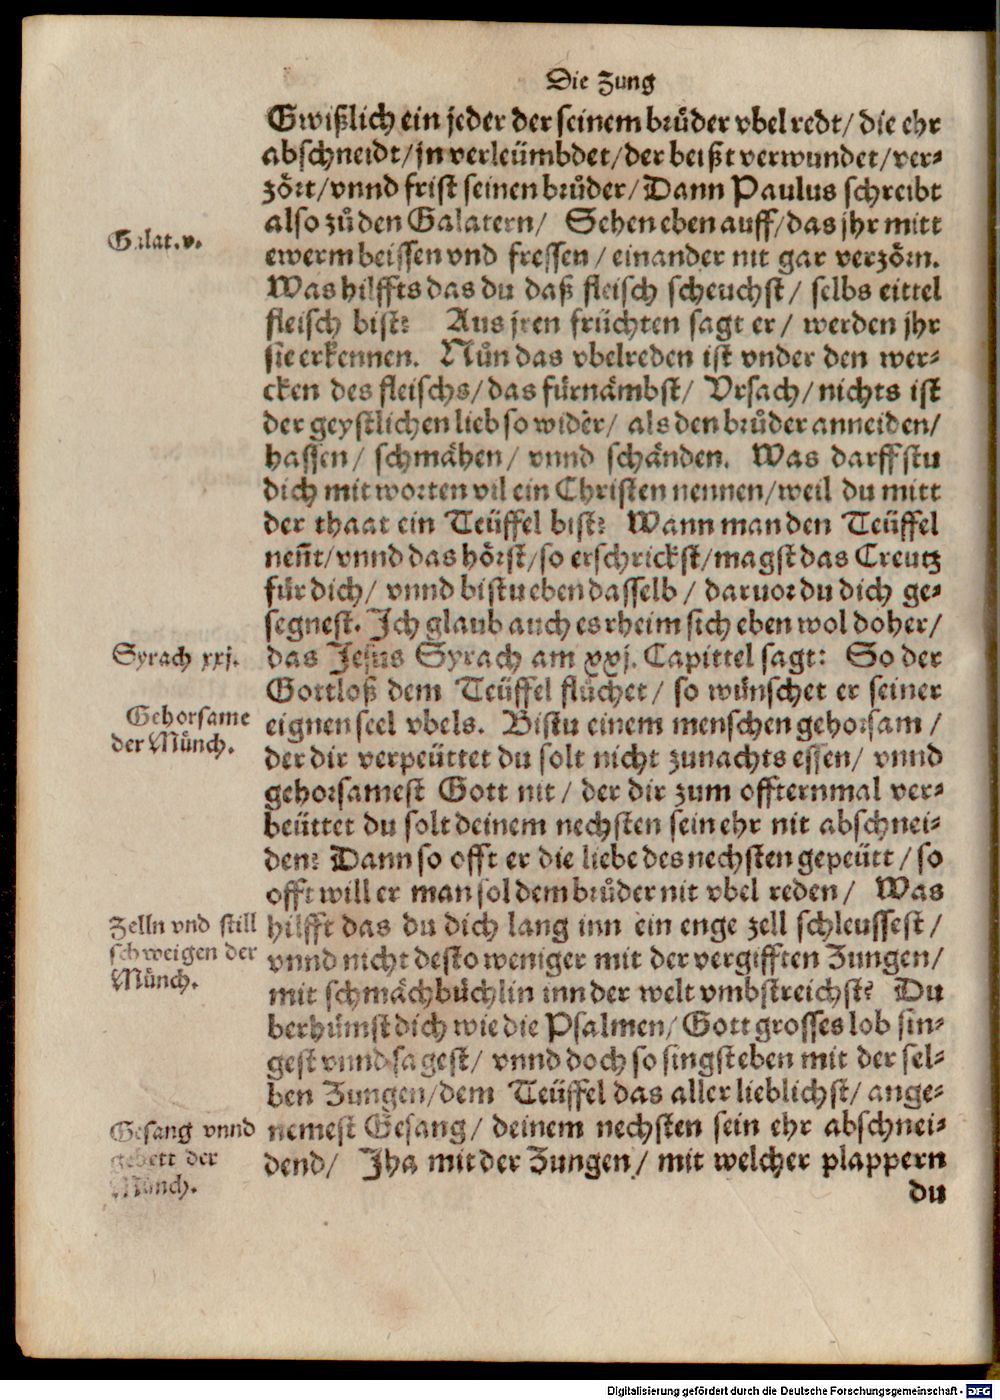 Die Zung
Gwißlich ein jeder der seinem brůder vbel redt/ die ehr
abschneidt/ jn verleümbdet/ der beißt verwundet/ ver-
zört/ vnnd frist seinen brůder/ Dann Paulus schreibt
also zů den Galatern/ Sehen eben auff/ das jhr mitt
Galat. v.
ewerm beissen vnd fressen/ einander nit gar verzörn.
Was hilffts das du daß fleisch scheuchst/ selbs eittel
fleisch bist? Aus jren früchten sagt er/ werden jhr
sie erkennen. Nůn das vbelreden ist vnder den wer-
cken des fleischs/ das fürnämbst/ Vrsach/ nichts ist
der geystlichen lieb so wider/ als den brůder anneiden/
hassen/ schmähen/ vnnd schänden. Was darffstu
dich mit worten vil ein Christen nennen/ weil du mitt
der thaat ein Teüffel bist? Wann man den Teüffel
neñt/ vnnd das hörst/ so erschrickst/ magst das Creutz
für dich/ vnnd bistu eben dasselb/ daruor du dich ge-
segnest. Ich glaub auch es rheim sich eben wol doher/
Syrach xxj.
das Jesus Syrach am xxj. Capittel sagt: So der
Gottloß dem Teüffel flůchet/ so wünschet er seiner
Gehorsame
der Münch.
eignen seel vbels. Bistu einem menschen gehorsam/
der dir verpeüttet du solt nicht zunachts essen/ vnnd
gehorsamest Gott nit/ der dir zum offternmal ver-
beüttet du solt deinem nechsten sein ehr nit abschnei-
den? Dann so offt er die liebe des nechsten gepeütt/ so
offt will er man sol dem brůder nit vbel reden/ Was
Zelln vnd still
schweigen der
Münch.
hilfft das du dich lang inn ein enge zell schleussest/
vnnd nicht desto weniger mit der vergifften Zungen/
mit schmächbüchlin inn der welt vmbstreichst? Du
berhümst dich wie die Psalmen/ Gott grosses lob sin-
gest vnnd sagest/ vnnd doch so singst eben mit der sel-
ben Zungen/ dem Teüffel das aller lieblichst/ ange-
Gesang vnnd
gebett der
Münch.
nemest Gesang/ deinem nechsten sein ehr abschnei-
dend/ Jha mit der Zungen/ mit welcher plappern
du
Digitalisierung gefördert durch die Deutsche Forschungsgemeinschaft - DFG